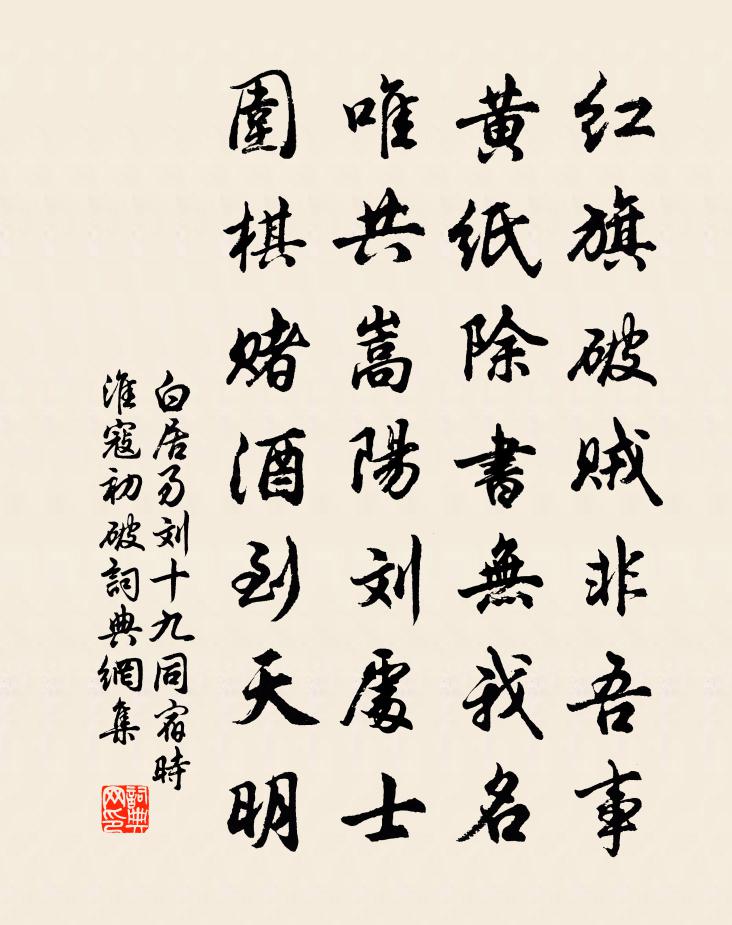 红旗破贼非吾事
黄紙除書無我名
唯共嵩陽刘處士
圍棋赌酒到天明
白居易刘十九同宿時
淮寇初破詞典網集
詞典网印